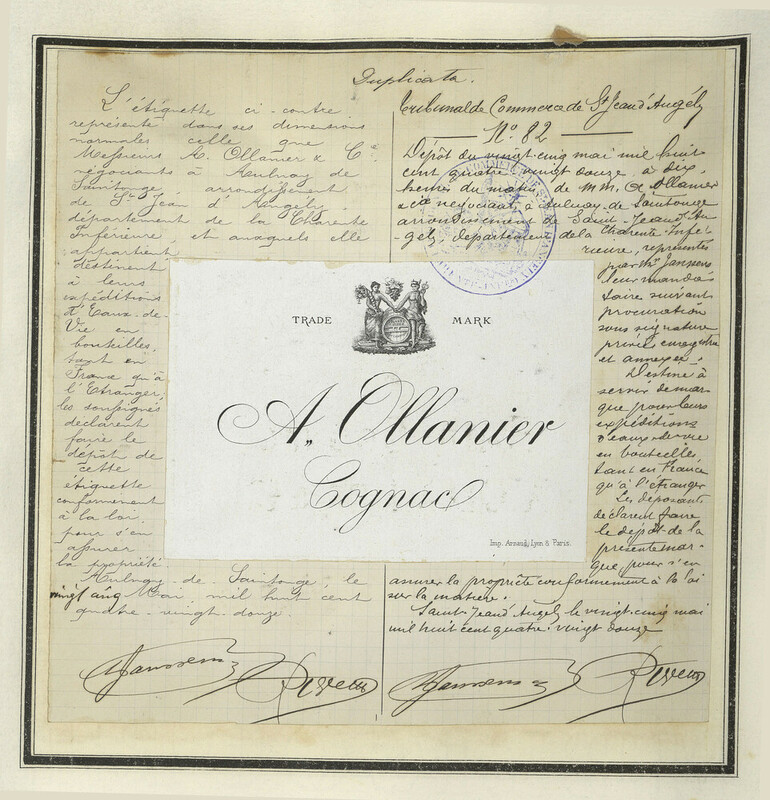 Duplicata.
L'étiquette ci-contre
représente dans ses dimensions
normales celle que
Messieurs A. Ollanier & Cie
négociants à Aulnay de
Saintonge, arrondissement
de St Jean d'Angély
département de la Charente
Inférieure, et auxquels elle
appartient
destinent
à leurs
expéditions
d'Eaux-de-
Vie en
bouteilles,
tant en
France qu'à
l'Etranger,
les soussignés
déclarent
faire le
dépôt de
cette
étiquette
conformément
à la loi
pour s'en
assurer
la propriété
Aulnay-de-Saintonge, le
vingt cinq Mai, mil huit cent
quatre-vingt-douze
Janssens
Tribunal de Commerce de St Jean d'Angély
No. 82
Dépôt du vingt-cinq mai mil huit
cent quatre vingt douze, à dix
heures du matin, de MM. A. Ollanier
& Cie négociant, à Aulnay de Saintonge
arrondissement de Saint-Jean d'An
-gely, département de la Charente-Infé
rieure, représentés
par Mr Janssens
leur manda-
taire suivant
procuration
sous signature
privée enregistrée
et annexée.
Destiné à
servir de mar
que pour leurs
expéditions
d'eaux-de-vie
en bouteilles
tant en France
qu'à l'étranger
Les déposants
déclarent faire
le dépôt de la
présente mar-
que, pour s'en
assurer la propriété conformément à la loi
sur la matière.
Saint-Jean d'Angely le vingt-cinq mai
mil huit cent quatre-vingt douze
Janssens
TRADE MARK
A. Ollanier
Cognac
Imp. Arnaud, Lyon & Paris.